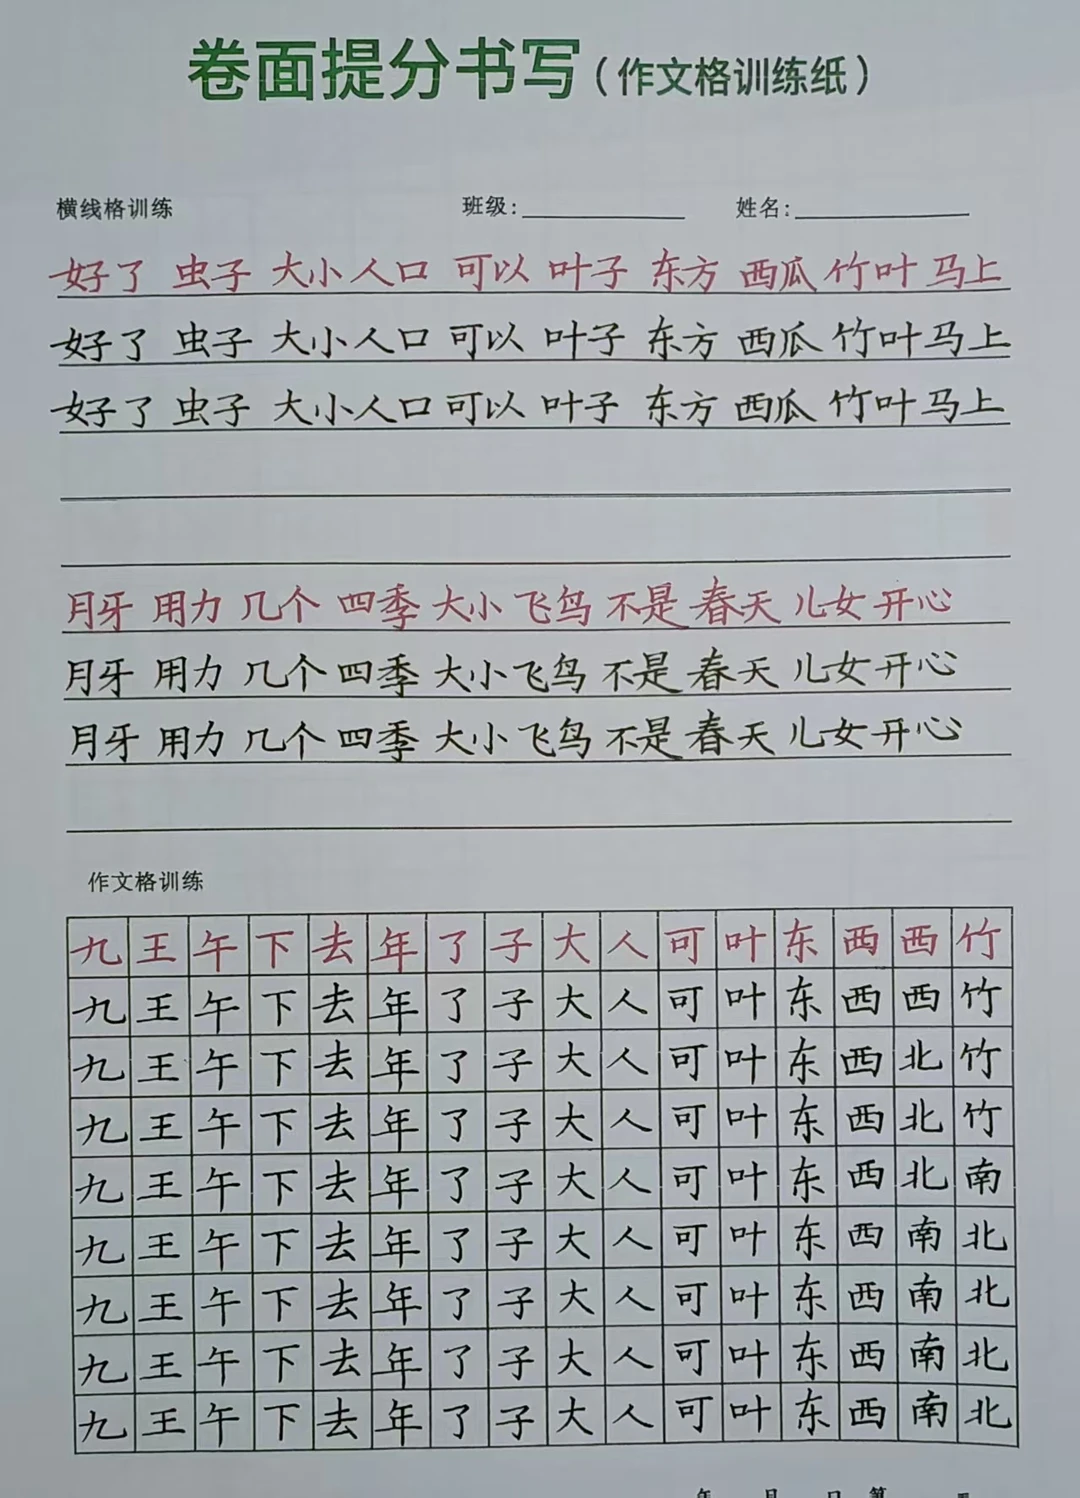 卷面提分书写（作文格训练纸）
横线格训练 班级: 姓名:
好了 虫子 大小人口 可以 叶子 东方 西瓜 竹叶 马上
好了 虫子 大小人口 可以 叶子 东方 西瓜 竹叶马上
好了 虫子 大小人口 可以 叶子 东方 西瓜 竹叶马上
月牙 用力 几个 四季 大小 飞鸟 不是 春天 儿女 开心
月牙 用力 几个 四季 大小 飞鸟 不是 春天 儿女 开心
月牙 用力 几个 四季 大小 飞鸟 不是 春天 儿女 开心
作文格训练
九王午下去年了子大人可叶东西西竹
九王午下去年了子大人可叶东西西竹
九王午下去年了子大人可叶东西北竹
九王午下去年了子大人可叶东西北竹
九王午下去年了子大人可叶东西北南
九王午下去年了子大人可叶东西南北
九王午下去年了子大人可叶东西南北
九王午下去年了子大人可叶东西南北
九王午下去年了子大人可叶东西南北